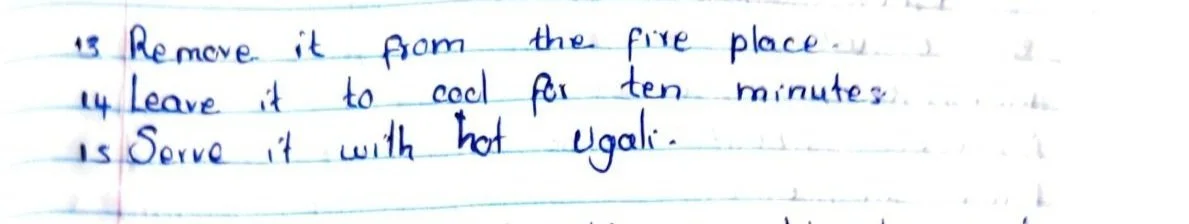 13 Remove it from the fire place.
14 Leave it to cool for ten minutes.
15 Serve it with hot Ugali.